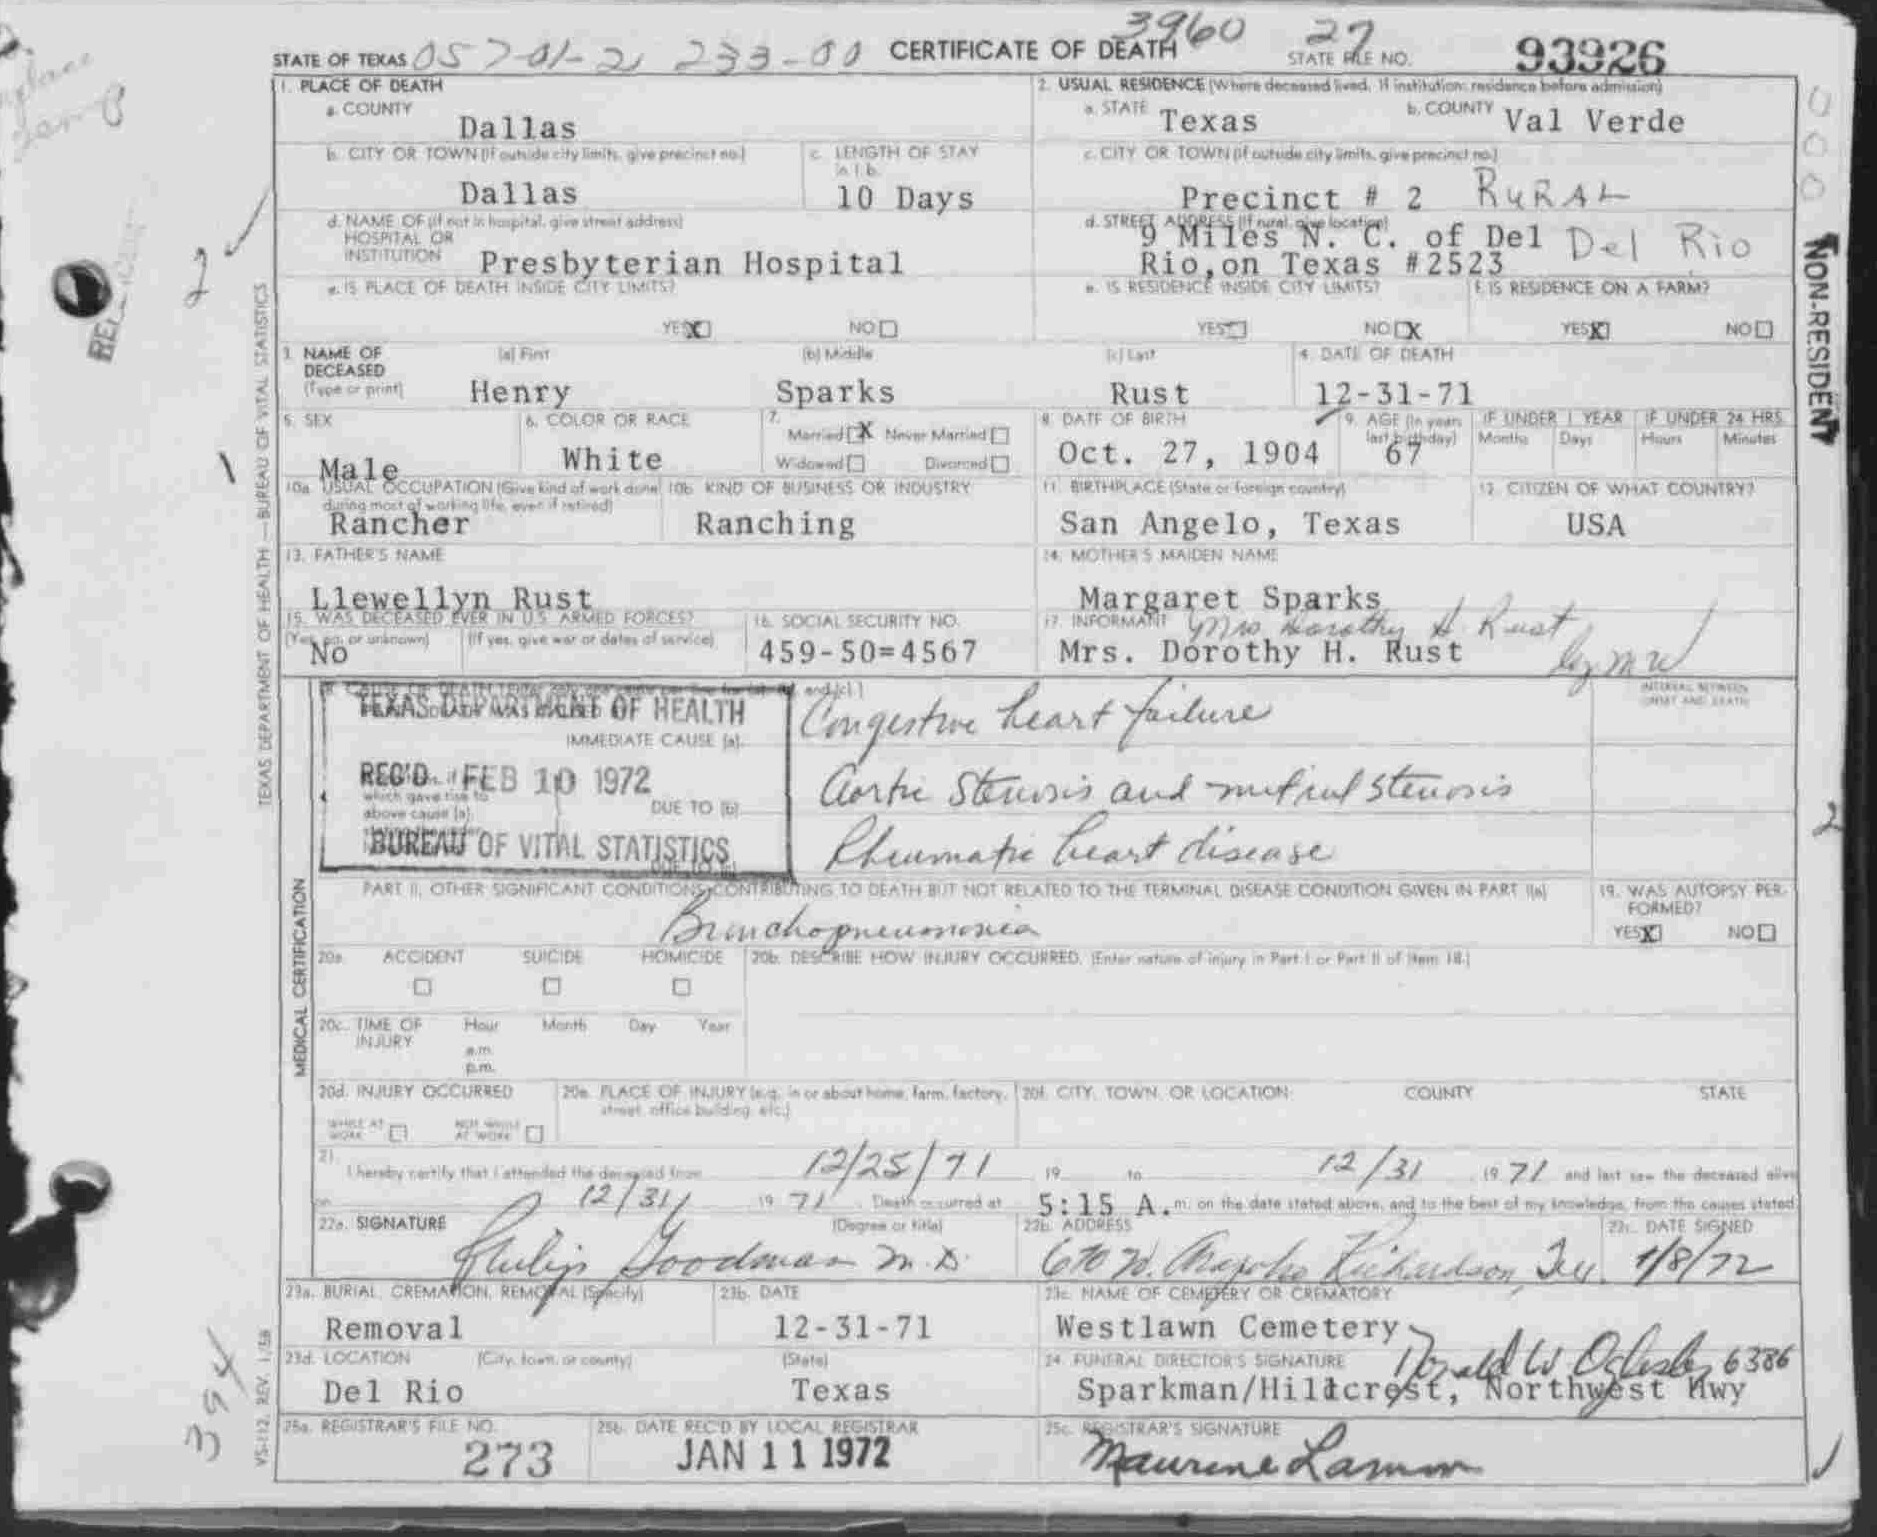 STATE OF TEXAS 057-01-2 233-00 CERTIFICATE OF DEATH 3960 27 STATE FILE NO. 93926
1. PLACE OF DEATH
a. COUNTY
Dallas
2. USUAL RESIDENCE (Where deceased lived. If institution: residence before admission)
a. STATE Texas b. COUNTY Val Verde
b. CITY OR TOWN (If outside city limits, give precinct no.)
Dallas
c. LENGTH OF STAY
in 1 b.
10 Days
c. CITY OR TOWN (If outside city limits, give precinct no.)
Precinct # 2 RURAL
d. NAME OF (If not in hospital, give street address)
HOSPITAL OR
INSTITUTION Presbyterian Hospital
d. STREET ADDRESS (If rural, give location)
9 Miles N. C. of Del Del Rio
Rio,on Texas #2523
e. IS PLACE OF DEATH INSIDE CITY LIMITS?
YES X NO
e. IS RESIDENCE INSIDE CITY LIMITS?
YES NO X
f. IS RESIDENCE ON A FARM?
YES X NO
3. NAME OF
DECEASED
(Type or print)
(a) First
Henry
(b) Middle
Sparks
(c) Last
Rust
4. DATE OF DEATH
12-31-71
5. SEX
Male
6. COLOR OR RACE
White
7.
Married X Never Married
Widowed Divorced
8. DATE OF BIRTH
Oct. 27, 1904
9. AGE (In years
last birthday)
67
IF UNDER 1 YEAR
Months Days
IF UNDER 24 HRS.
Hours Minutes
10a. USUAL OCCUPATION (Give kind of work done
during most of working life, even if retired)
Rancher
10b. KIND OF BUSINESS OR INDUSTRY
Ranching
11. BIRTHPLACE (State or foreign country)
San Angelo, Texas
12. CITIZEN OF WHAT COUNTRY?
USA
13. FATHER'S NAME
Llewellyn Rust
14. MOTHER'S MAIDEN NAME
Margaret Sparks
15. WAS DECEASED EVER IN U.S. ARMED FORCES?
(Yes, no, or unknown) (If yes, give war or dates of service)
No
16. SOCIAL SECURITY NO.
459-50=4567
17. INFORMANT Mrs Dorothy H. Rust
Mrs. Dorothy H. Rust by MW
INTERVAL BETWEEN
ONSET AND DEATH
TEXAS DEPARTMENT OF HEALTH
REC'D FEB 10 1972
BUREAU OF VITAL STATISTICS
IMMEDIATE CAUSE (a) Congestive heart failure
which gave rise to
above cause (a)
DUE TO (b) Aortic Stenosis and mitral stenosis
Rheumatic heart disease
PART II. OTHER SIGNIFICANT CONDITIONS CONTRIBUTING TO DEATH BUT NOT RELATED TO THE TERMINAL DISEASE CONDITION GIVEN IN PART I(a)
Bronchopneumonia
19. WAS AUTOPSY PER-
FORMED?
YES X NO
20a. ACCIDENT SUICIDE HOMICIDE
20b. DESCRIBE HOW INJURY OCCURRED. (Enter nature of injury in Part I or Part II of Item 18.)
20c. TIME OF
INJURY
Hour Month Day Year
a.m.
p.m.
20d. INJURY OCCURRED
WHILE AT
WORK
NOT WHILE
AT WORK
20e. PLACE OF INJURY (e.g. in or about home, farm, factory,
street, office building, etc.)
20f. CITY, TOWN, OR LOCATION COUNTY STATE
21.
I hereby certify that I attended the deceased from 12/25/71 19 to 12/31 1971 and last saw the deceased alive
on 12/31 1971. Death occurred at 5:15 A.m. on the date stated above, and to the best of my knowledge, from the causes stated.
22a. SIGNATURE (Degree or title)
Philip Goodman M.D.
22b. ADDRESS
670 W. Arapaho Richardson, Tex.
22c. DATE SIGNED
1/8/72
23a. BURIAL, CREMATION, REMOVAL (Specify)
Removal
23b. DATE
12-31-71
23c. NAME OF CEMETERY OR CREMATORY
Westlawn Cemetery
23d. LOCATION (City, town, or county) (State)
Del Rio Texas
24. FUNERAL DIRECTOR'S SIGNATURE Donald W Oglesby 6386
Sparkman/Hillcrest, Northwest Hwy
25a. REGISTRAR'S FILE NO.
273
25b. DATE REC'D BY LOCAL REGISTRAR
JAN 11 1972
25c. REGISTRAR'S SIGNATURE
Maurine Lamm
TEXAS DEPARTMENT OF HEALTH — BUREAU OF VITAL STATISTICS
MEDICAL CERTIFICATION
VS-112, REV. 1/58
NON-RESIDENT
2
2
394
000